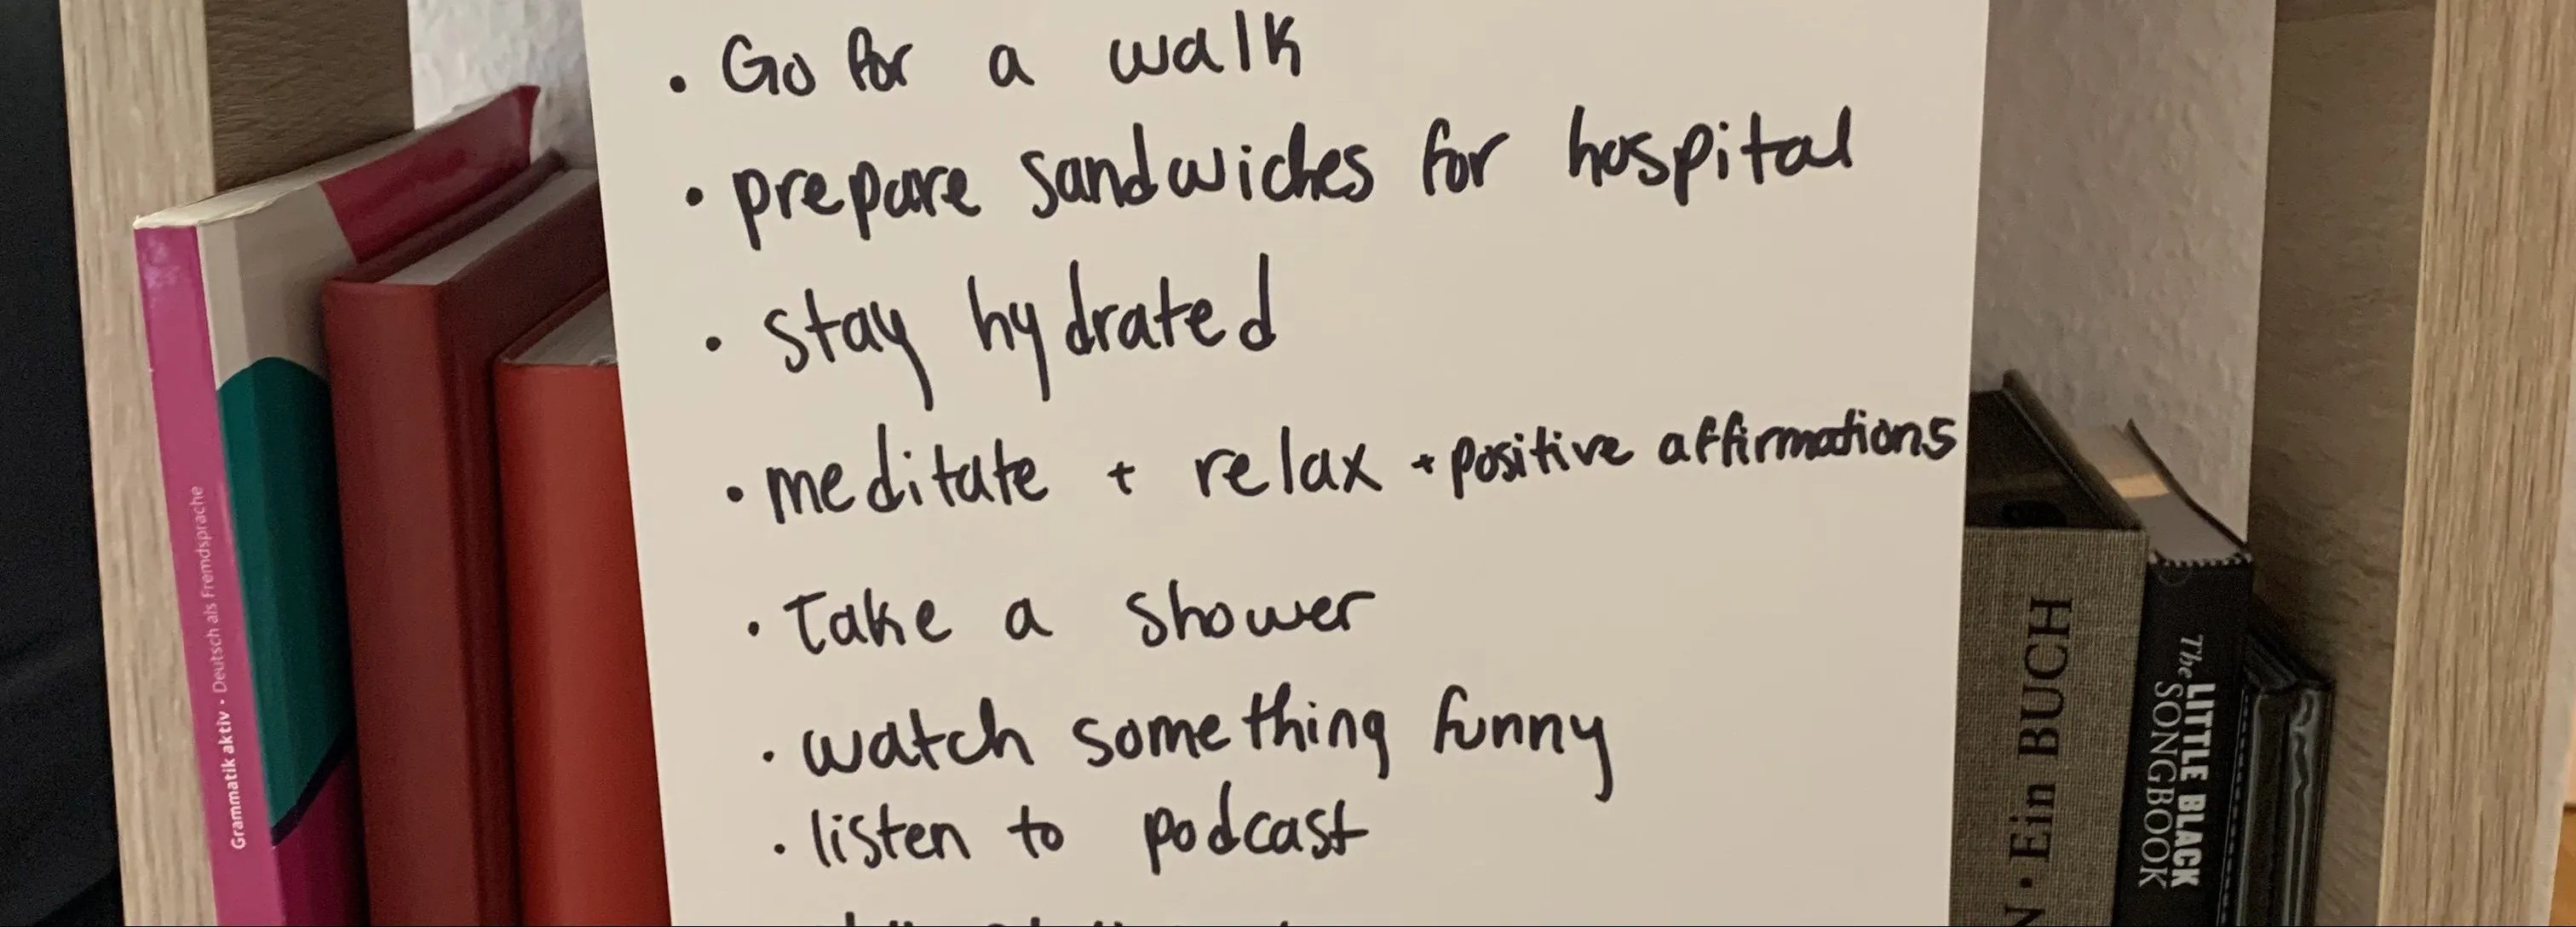 • Go for a walk
• prepare sandwiches for hospital
• stay hydrated
• meditate + relax + positive affirmations
• Take a shower
• watch something funny
• listen to podcast
Grammatik aktiv • Deutsch als Fremdsprache
N • Ein BUCH
The LITTLE BLACK
SONGBOOK